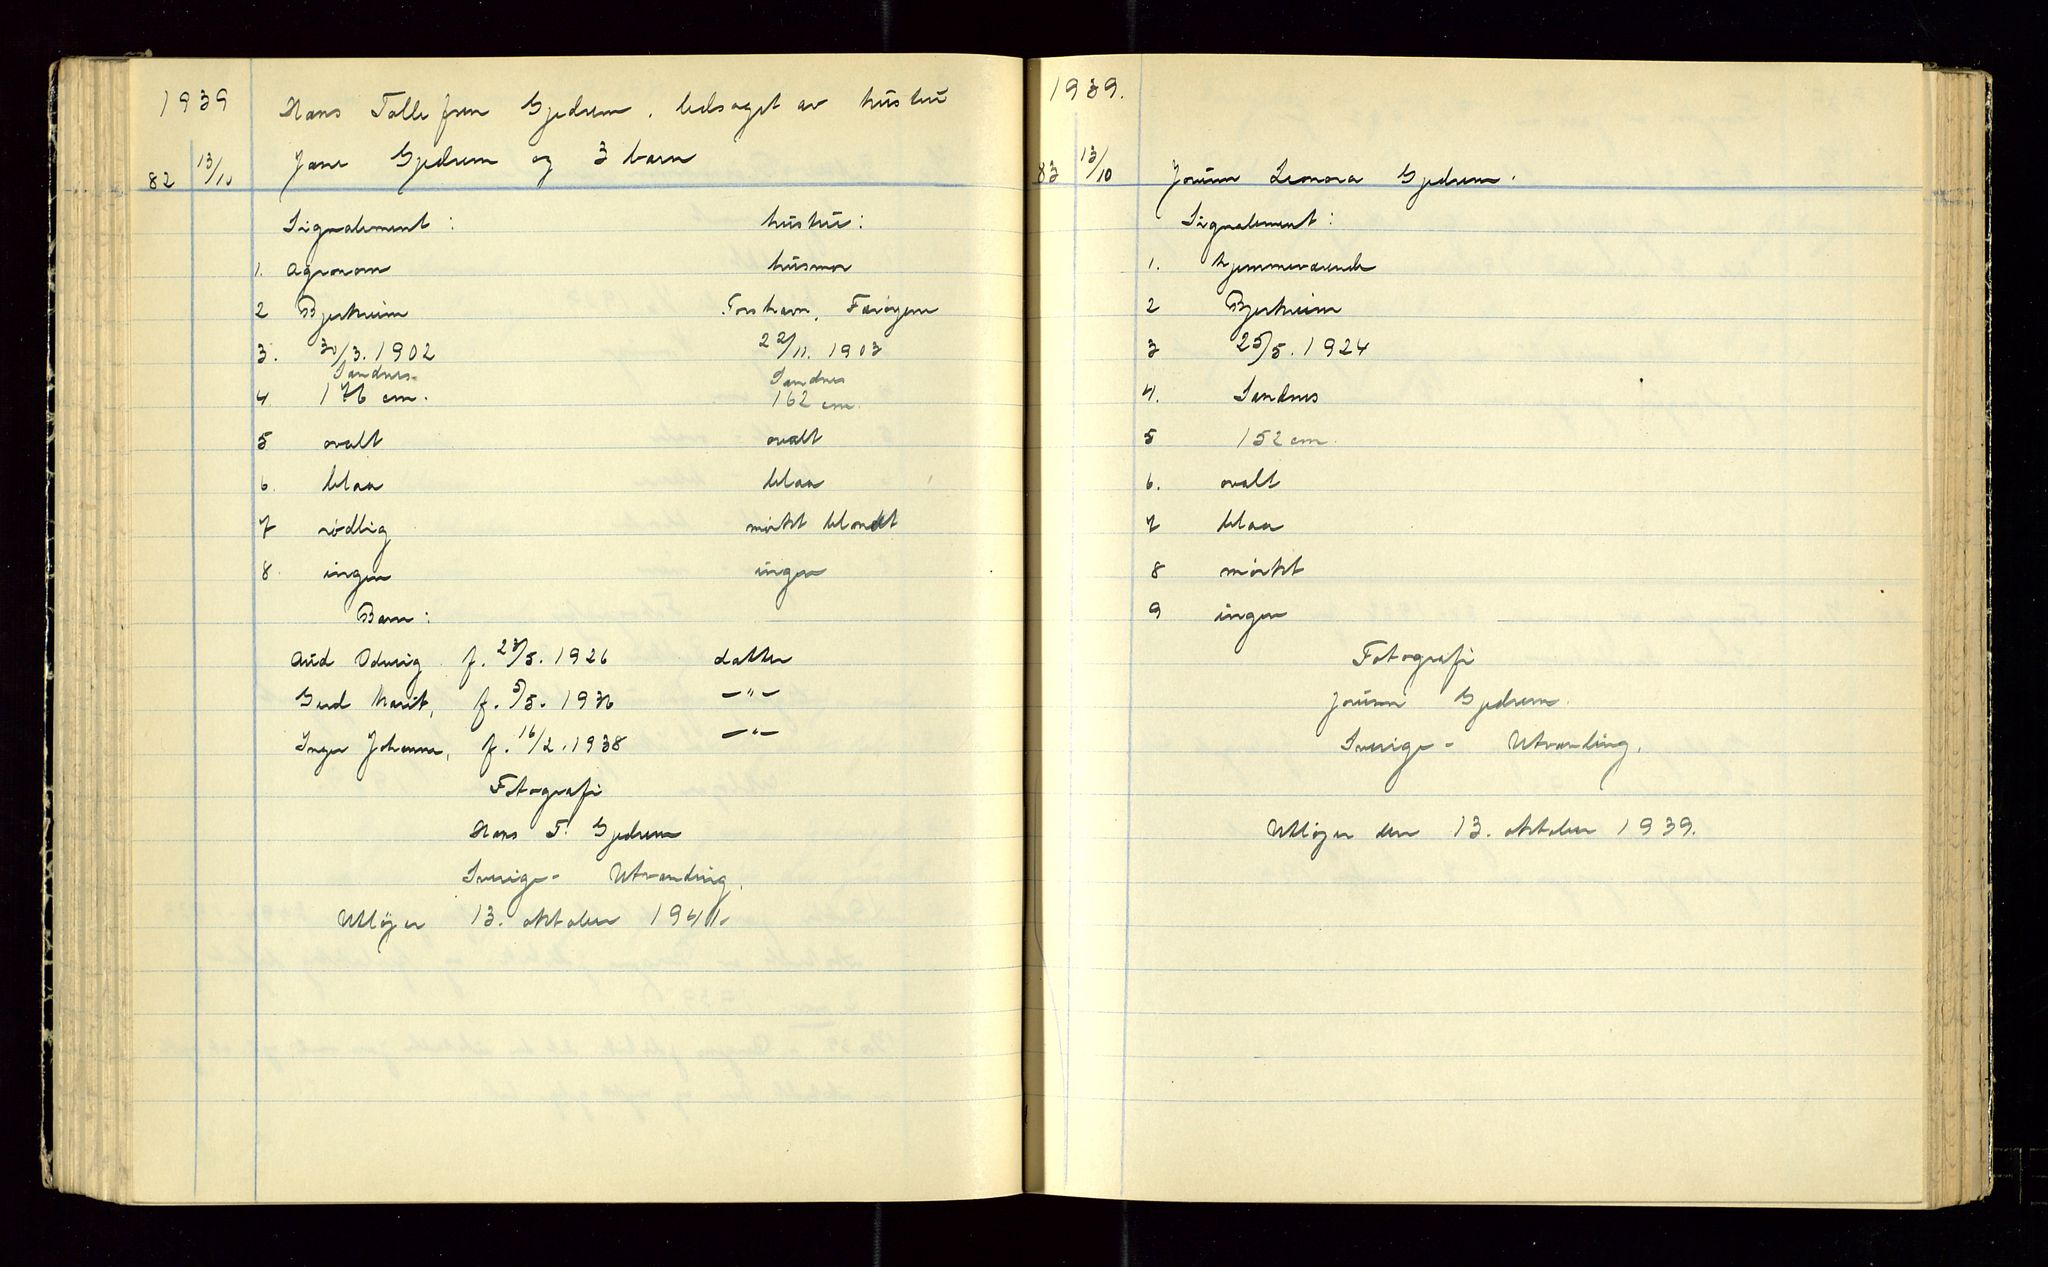 1939
Hans Tollefsen Gjedrem, ledsaget av hustru
82 13/10 Jane Gjedrem og 3 barn
Signalement: hustru:
1. agronom husmor
2 Bjerkreim Torshavn, Færøyene
3. 30/3. 1902 22/11. 1903
Sandnes Sandnes
4. 176 cm. 162 cm.
5 ovalt ovalt
6. blaa blaa
7 rødlig mørkt blondt
8. ingen ingen
Barn:
Aud Odveig f. 23/5. 1926 datter
Gerd Marit, f. 5/5. 1936 —"—
Inger Johanna, f. 16/2. 1938 —"—
Fotografi
Hans T. Gjedrem
Sverige - Utvandring.
Utløper 13. oktober 1941.
1939.
83 13/10 Jorunn Leonora Gjedrem.
Signalement:
1. hjemmeværende
2 Bjerkreim
3 25/5. 1924
4. Sandnes
5 152 cm.
6. ovalt
7 blaa
8 mørkt
9 ingen
Fotografi
Jorunn Gjedrem.
Sverige - Utvandring.
Utløper den 13. oktober 1939.